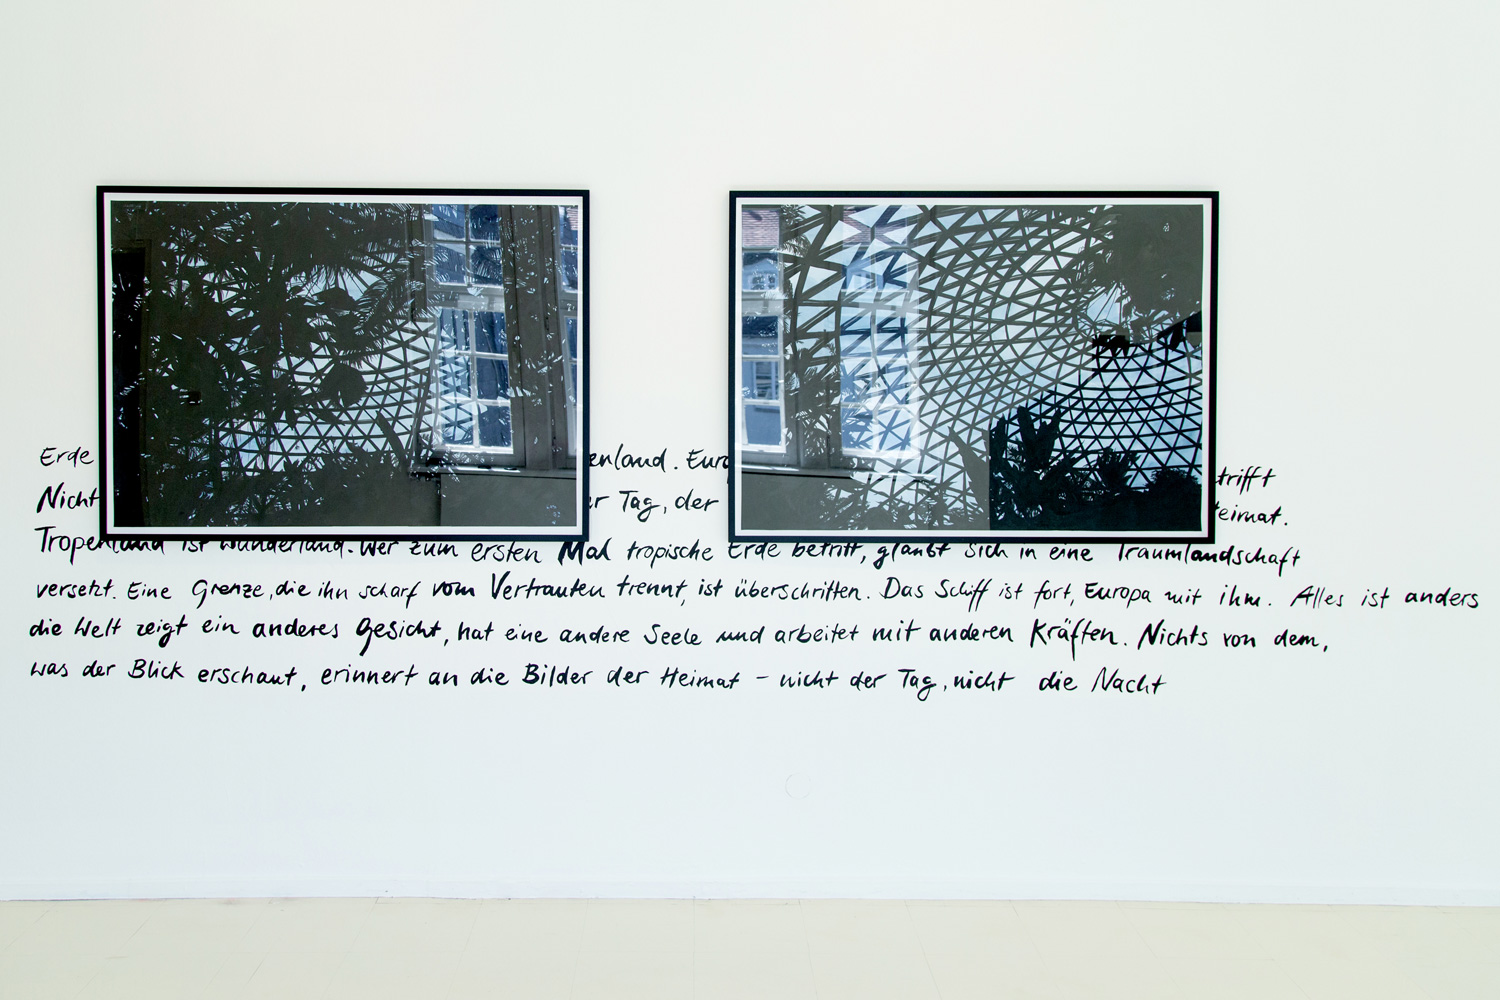 Erde enland. Euro trifft
Nicht r Tag, der eimat.
Tropenland ist Wunderland. Wer zum ersten Mal tropische Erde betritt, glaubt sich in eine Traumlandschaft
versetzt. Eine Grenze, die ihn scharf vom Vertrauten trennt, ist überschritten. Das Schiff ist fort, Europa mit ihm. Alles ist anders
die Welt zeigt ein anderes Gesicht, hat eine andere Seele und arbeitet mit anderen Kräften. Nichts von dem,
was der Blick erschaut, erinnert an die Bilder der Heimat – nicht der Tag, nicht die Nacht